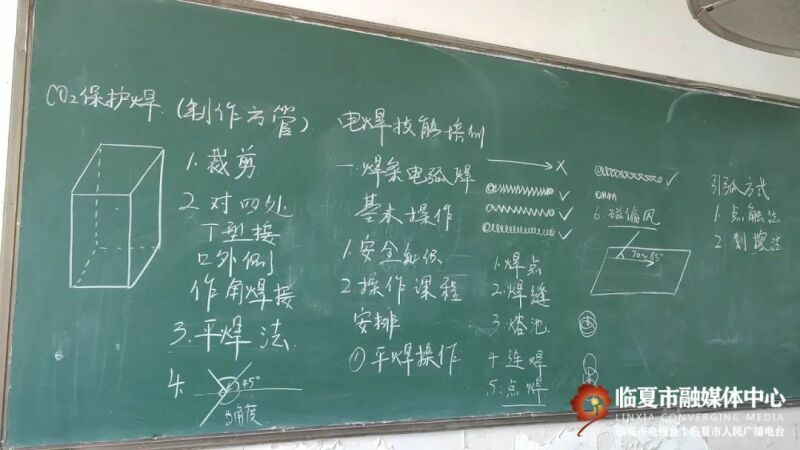 CO₂保护焊.(制作方管).
1.裁剪
2.对四处
丁型接
口外侧
作角焊接
3.平焊法.
4.
45°
角度
电焊技能培训
一.焊条电弧焊
基本操作
1.安全
2.操作课程
安排
①平焊操作
1.焊点
2.焊缝
3.熔池
4.连焊
5.点焊
6.磁偏风
70~85°
引弧方式
1.点触法
2.划擦法
临夏市融媒体中心
LINXIA CONVERGING MEDIA
临夏市电视台|临夏市人民广播电台